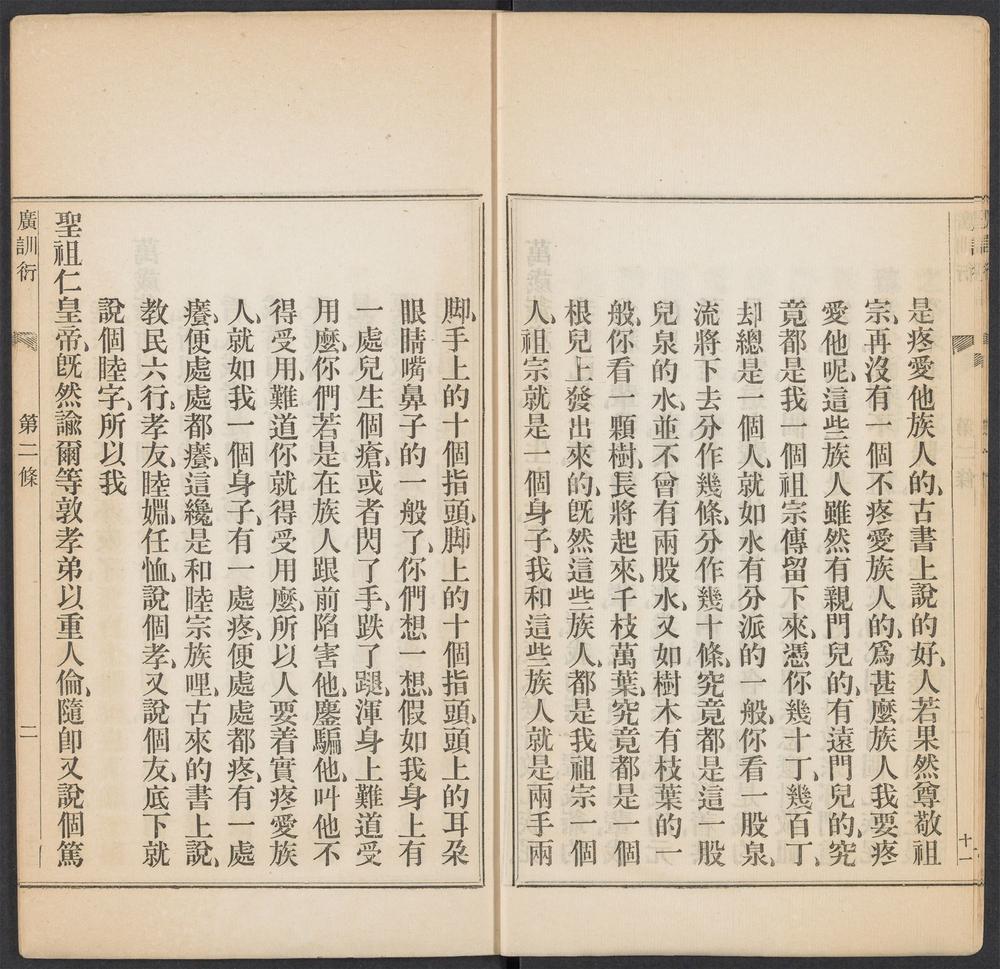 是疼愛他族人的、古書上說的好、人若果然尊敬祖
宗、再沒有一個不疼愛族人的、爲甚麼族人我要疼
愛他呢、這些族人雖然有親門兒的、有遠門兒的、究
竟都是我一個祖宗傳留下來、憑你幾十丁、幾百丁、
却總是一個人、就如水有分派的一般、你看一股泉、
流將下去、分作幾條、分作幾十條、究竟都是這一股
兒泉的水、並不曾有兩股水、又如樹木有枝葉的一
般、你看一顆樹、長將起來、千枝萬葉、究竟都是一個
根兒上發出來的、旣然這些族人、都是我祖宗一個
人、祖宗就是一個身子、我和這些族人就是兩手兩
十一
脚、手上的十個指頭、脚上的十個指頭、頭上的耳朶
眼睛嘴鼻子的一般了、你們想一想、假如我身上有
一處兒生個瘡、或者閃了手、跌了腿、渾身上難道受
用麼、你們若是在族人跟前陷害他、鏖騙他、叫他不
得受用、難道你就得受用麼、所以人要着實疼愛族
人、就如我一個身子、有一處疼、便處處都疼、有一處
癢、便處處都癢、這纔是和睦宗族哩、古來的書上說、
教民六行、孝友睦婣任恤、說個孝、又說個友、底下就
說個睦字、所以我
聖祖仁皇帝、旣然諭爾等敦孝弟以重人倫、隨卽又說個篤
廣訓衍
第二條
二